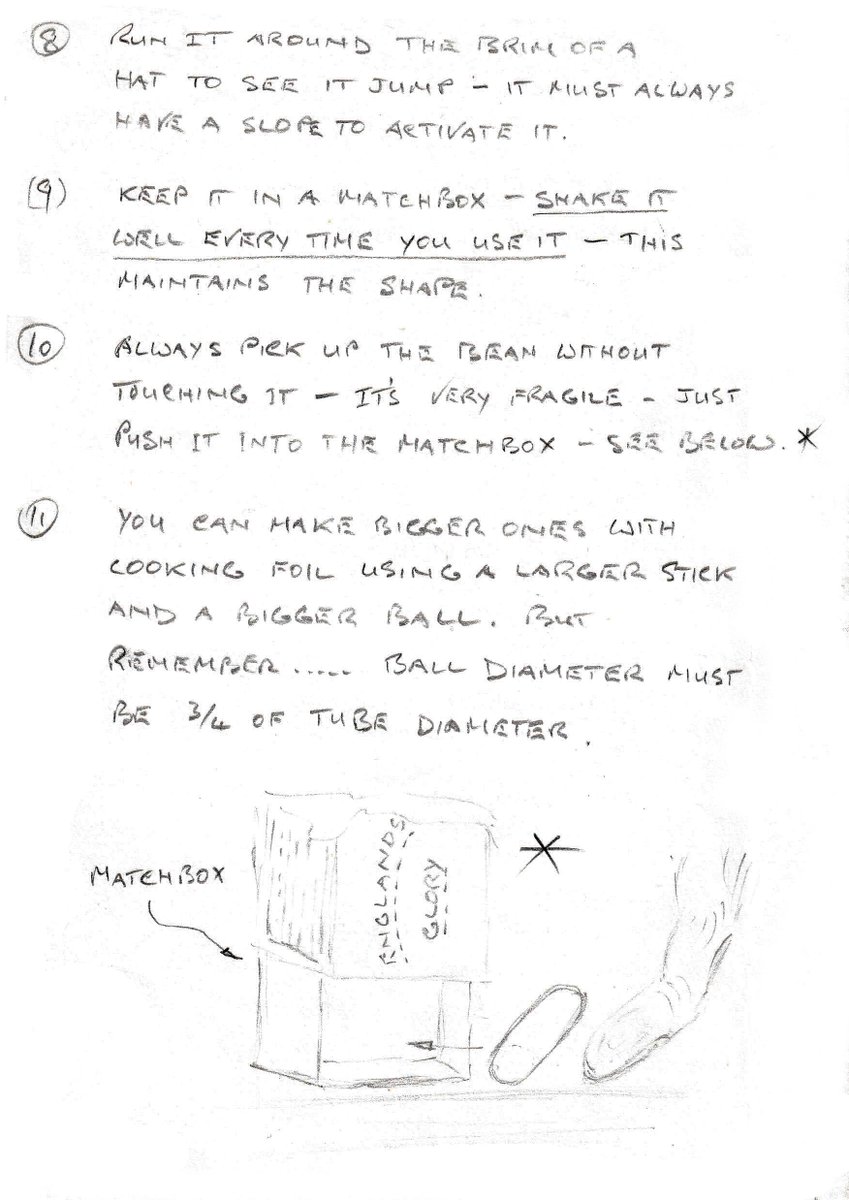 (8) RUN IT AROUND THE BRIM OF A
HAT TO SEE IT JUMP – IT MUST ALWAYS
HAVE A SLOPE TO ACTIVATE IT.
(9) KEEP IT IN A MATCHBOX – SHAKE IT
WELL EVERY TIME YOU USE IT – THIS
MAINTAINS THE SHAPE.
(10) ALWAYS PICK UP THE BEAN WITHOUT
TOUCHING IT – IT'S VERY FRAGILE – JUST
PUSH IT INTO THE MATCHBOX – SEE BELOW. *
(11) YOU CAN MAKE BIGGER ONES WITH
COOKING FOIL USING A LARGER STICK
AND A BIGGER BALL. BUT
REMEMBER ..... BALL DIAMETER MUST
BE 3/4 OF TUBE DIAMETER.
*
MATCHBOX
ENGLANDS
GLORY